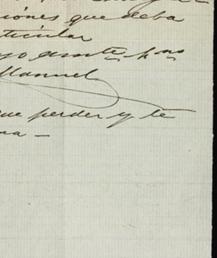 iónes que deba
ticular
yo amte, hno
Manuel
ue perder y te
na —